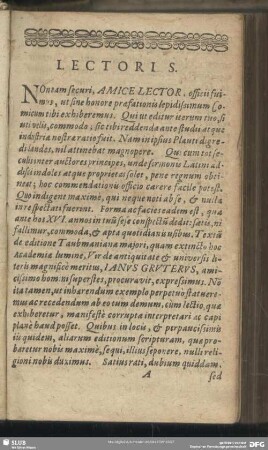 LECTORI S.
NOntam securi, AMICE LECTOR, officii fui-
mus, ut sine honore præfationis lepidissimum Co-
micum tibi exhiberemus. Qui ut editur iterum eno, si
uti velis, commodo; sic tibi reddenda aut e studii atque
industria nostra ratio fuit. Nam in ipsius Plauti digre-
di laudes, nil attinebat magnopere. Qui cum tot se-
culis inter auctores principes, unde sermonis Latini ad-
discti indoles atque proprietas solet, pene regnum obti-
neat; hoc commendationis officio carere facile potest.
Quo indigent maxime, qui neque noti ab se, & nulla
in re spectati fuerent. Forma ac facies eadem est, qua
ante hos XVI annos in tuum se conspectum dedit: satis, ni
fallimur, commoda, & apta quotidianis usibus. Textum
de editione Taubmaniana majori, quam extincto hoc
Academiæ lumine, Vir de antiquitate & universis li-
teris magnifice meritus, IANVS GRVTERVS, ami-
cissimo homini superstes, procuravit, expressimus. No
ita tamen, ut inhærendum exemplo perpetuo statuere-
mus ac recedendum ab eo tum demum, cum lectio, quæ
exhiberetur, manifeste corrupta interpretari ac capi
plane haud posset. Quibus in locis, & perpaucissimis
iis quidem, aliarum editionum scripturam, quæ pro-
baretur nobis maxime, sequi, illius seponere, nulli reli-
gioni nobis duximus. Satius rati, dubium quiddam,
A sed
SLUB
DFG